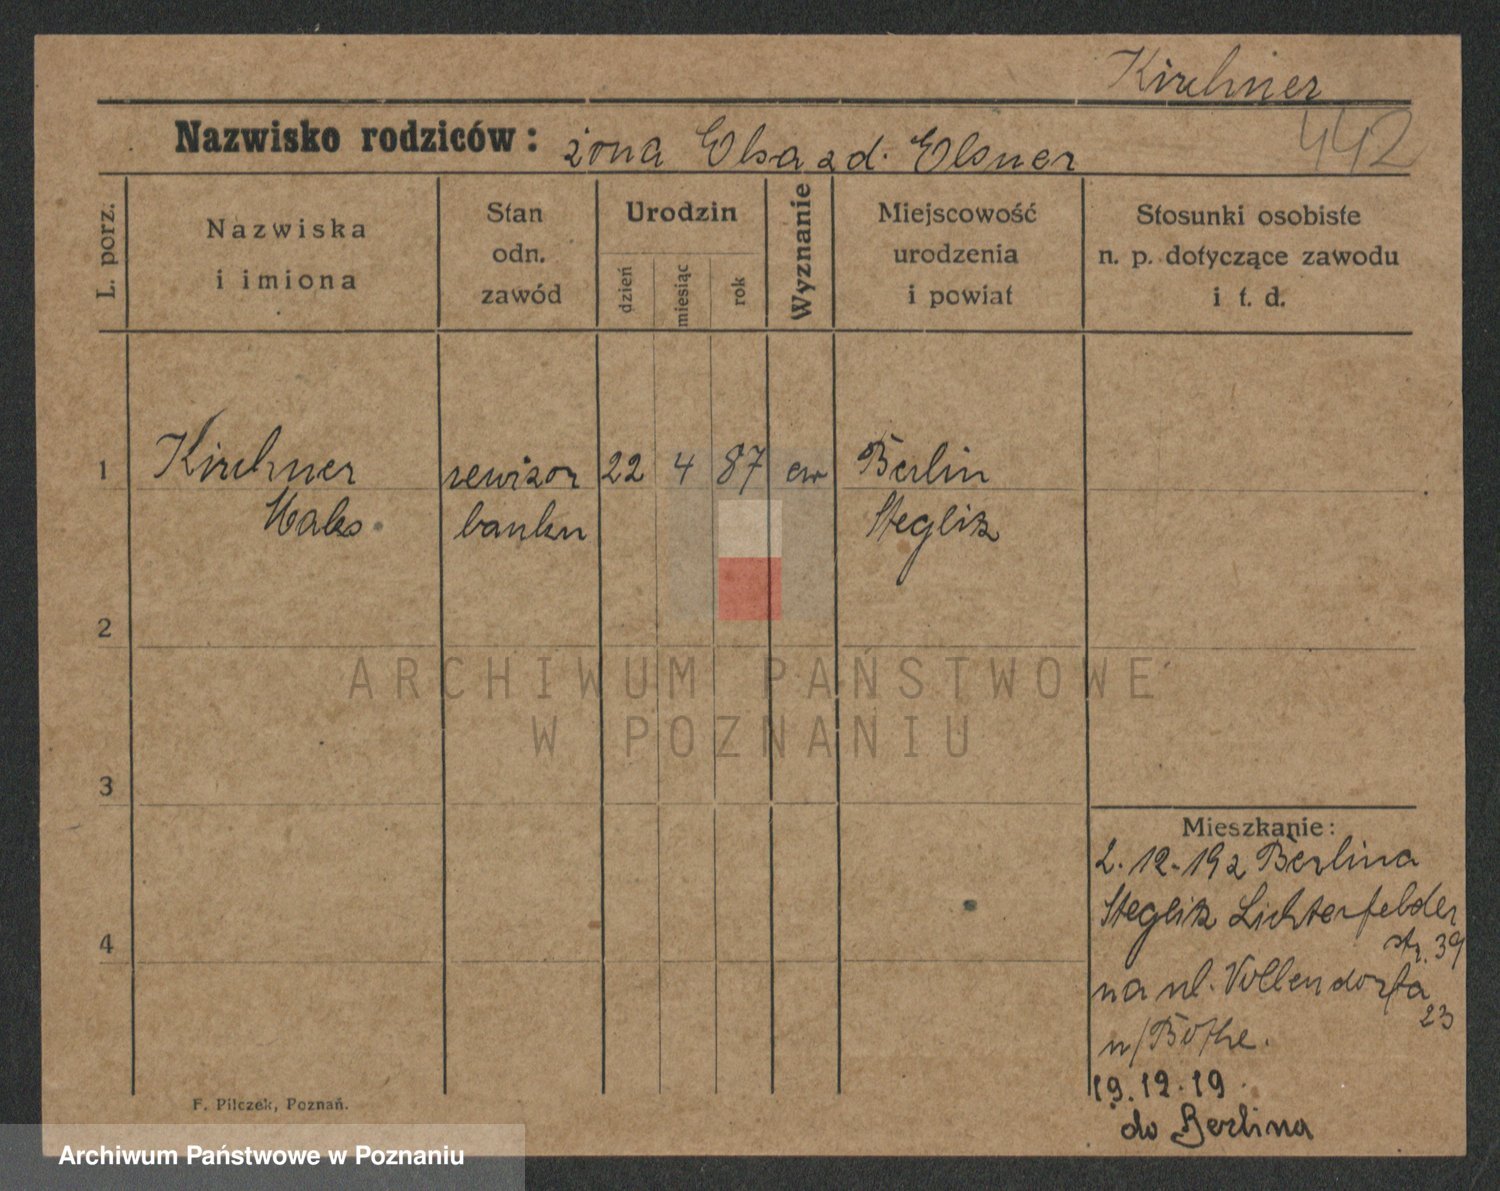 Kirchner
442
Nazwisko rodziców: żona Elsa z d. Elsner
L. porz.
Nazwiska
i imiona
Stan
odn.
zawód
Urodzin
dzień
miesiąc
rok
Wyznanie
Miejscowość
urodzenia
i powiat
Stosunki osobiste
n. p. dotyczące zawodu
i t. d.
1 Kirchner rewizor 22 4 87 ew Berlin
Maks banku Steglitz
2
3
4
Mieszkanie:
2.12.19 z Berlina
Steglitz Lichterfelder
str. 39
na ul. Vollendorfa
23
u/Bothe.
19.12.19
do Berlina
F. Pilczek, Poznań.
ARCHIWUM PAŃSTWOWE
W POZNANIU
Archiwum Państwowe w Poznaniu